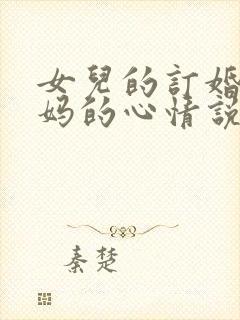 女兒的訂婚
妈的心情説
秦楚